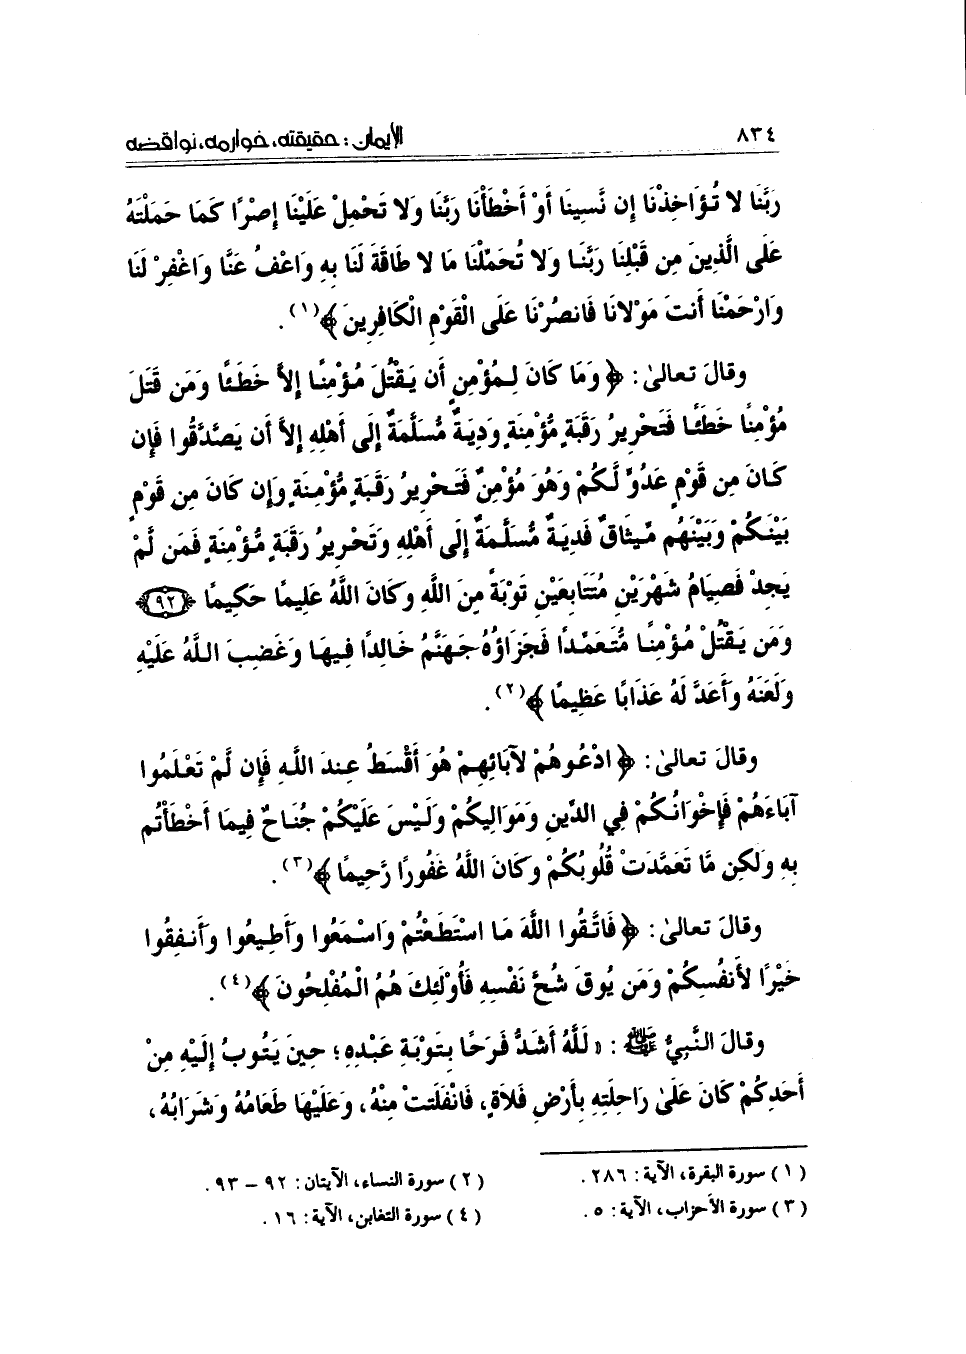 ٨٣٤
الإيمان: حقيقته، خوارمه، نواقضه
رَبَّنَا لا تُؤَاخِذْنَا إِن نَّسِينَا أَوْ أَخْطَأْنَا رَبَّنَا وَلا تَحْمِلْ عَلَيْنَا إِصْرًا كَمَا حَمَلْتَهُ
عَلَى الَّذِينَ مِن قَبْلِنَا رَبَّنَا وَلا تُحَمِّلْنَا مَا لا طَاقَةَ لَنَا بِهِ وَاعْفُ عَنَّا وَاغْفِرْ لَنَا
وَارْحَمْنَا أَنتَ مَوْلانَا فَانصُرْنَا عَلَى الْقَوْمِ الْكَافِرِينَ ﴾(١).
وقالَ تعالىٰ: ﴿ وَمَا كَانَ لِمُؤْمِنٍ أَن يَقْتُلَ مُؤْمِنًا إِلاَّ خَطَئًا وَمَن قَتَلَ
مُؤْمِنًا خَطَئًا فَتَحْرِيرُ رَقَبَةٍ مُّؤْمِنَةٍ وَدِيَةٌ مُّسَلَّمَةٌ إِلَى أَهْلِهِ إِلاَّ أَن يَصَّدَّقُوا فَإِن
كَانَ مِن قَوْمٍ عَدُوٍّ لَّكُمْ وَهُوَ مُؤْمِنٌ فَتَحْرِيرُ رَقَبَةٍ مُّؤْمِنَةٍ وَإِن كَانَ مِن قَوْمٍ
بَيْنَكُمْ وَبَيْنَهُم مِّيثَاقٌ فَدِيَةٌ مُّسَلَّمَةٌ إِلَى أَهْلِهِ وَتَحْرِيرُ رَقَبَةٍ مُّؤْمِنَةٍ فَمَن لَّمْ
يَجِدْ فَصِيَامُ شَهْرَيْنِ مُتَتَابِعَيْنِ تَوْبَةً مِنَ اللَّهِ وَكَانَ اللَّهُ عَلِيمًا حَكِيمًا ﴿٩٢﴾
وَمَن يَقْتُلْ مُؤْمِنًا مُّتَعَمِّدًا فَجَزَاؤُهُ جَهَنَّمُ خَالِدًا فِيهَا وَغَضِبَ اللَّهُ عَلَيْهِ
وَلَعَنَهُ وَأَعَدَّ لَهُ عَذَابًا عَظِيمًا ﴾(٢).
وقالَ تعالىٰ: ﴿ ادْعُوهُمْ لآبَائِهِمْ هُوَ أَقْسَطُ عِندَ اللَّهِ فَإِن لَّمْ تَعْلَمُوا
آبَاءَهُمْ فَإِخْوَانُكُمْ فِي الدِّينِ وَمَوَالِيكُمْ وَلَيْسَ عَلَيْكُمْ جُنَاحٌ فِيمَا أَخْطَأْتُم
بِهِ وَلَكِن مَّا تَعَمَّدَتْ قُلُوبُكُمْ وَكَانَ اللَّهُ غَفُورًا رَّحِيمًا ﴾(٣).
وقالَ تعالىٰ: ﴿ فَاتَّقُوا اللَّهَ مَا اسْتَطَعْتُمْ وَاسْمَعُوا وَأَطِيعُوا وَأَنفِقُوا
خَيْرًا لأَنفُسِكُمْ وَمَن يُوقَ شُحَّ نَفْسِهِ فَأُوْلَئِكَ هُمُ الْمُفْلِحُونَ ﴾(٤).
وقالَ النَّبِيُّ ﷺ: «لَلَّهُ أَشَدُّ فَرَحًا بِتَوْبَةِ عَبْدِهِ؛ حِينَ يَتُوبُ إِلَيْهِ مِنْ
أَحَدِكُمْ كَانَ عَلَىٰ رَاحِلَتِهِ بِأَرْضِ فَلاَةٍ، فَانْفَلَتتْ مِنْهُ، وَعَلَيْهَا طَعَامُهُ وَشَرَابُهُ،
(١) سورة البقرة، الآية: ٢٨٦.
(٢) سورة النساء، الآيتان: ٩٢ – ٩٣.
(٣) سورة الأحزاب، الآية: ٥.
(٤) سورة التغابن، الآية: ١٦.